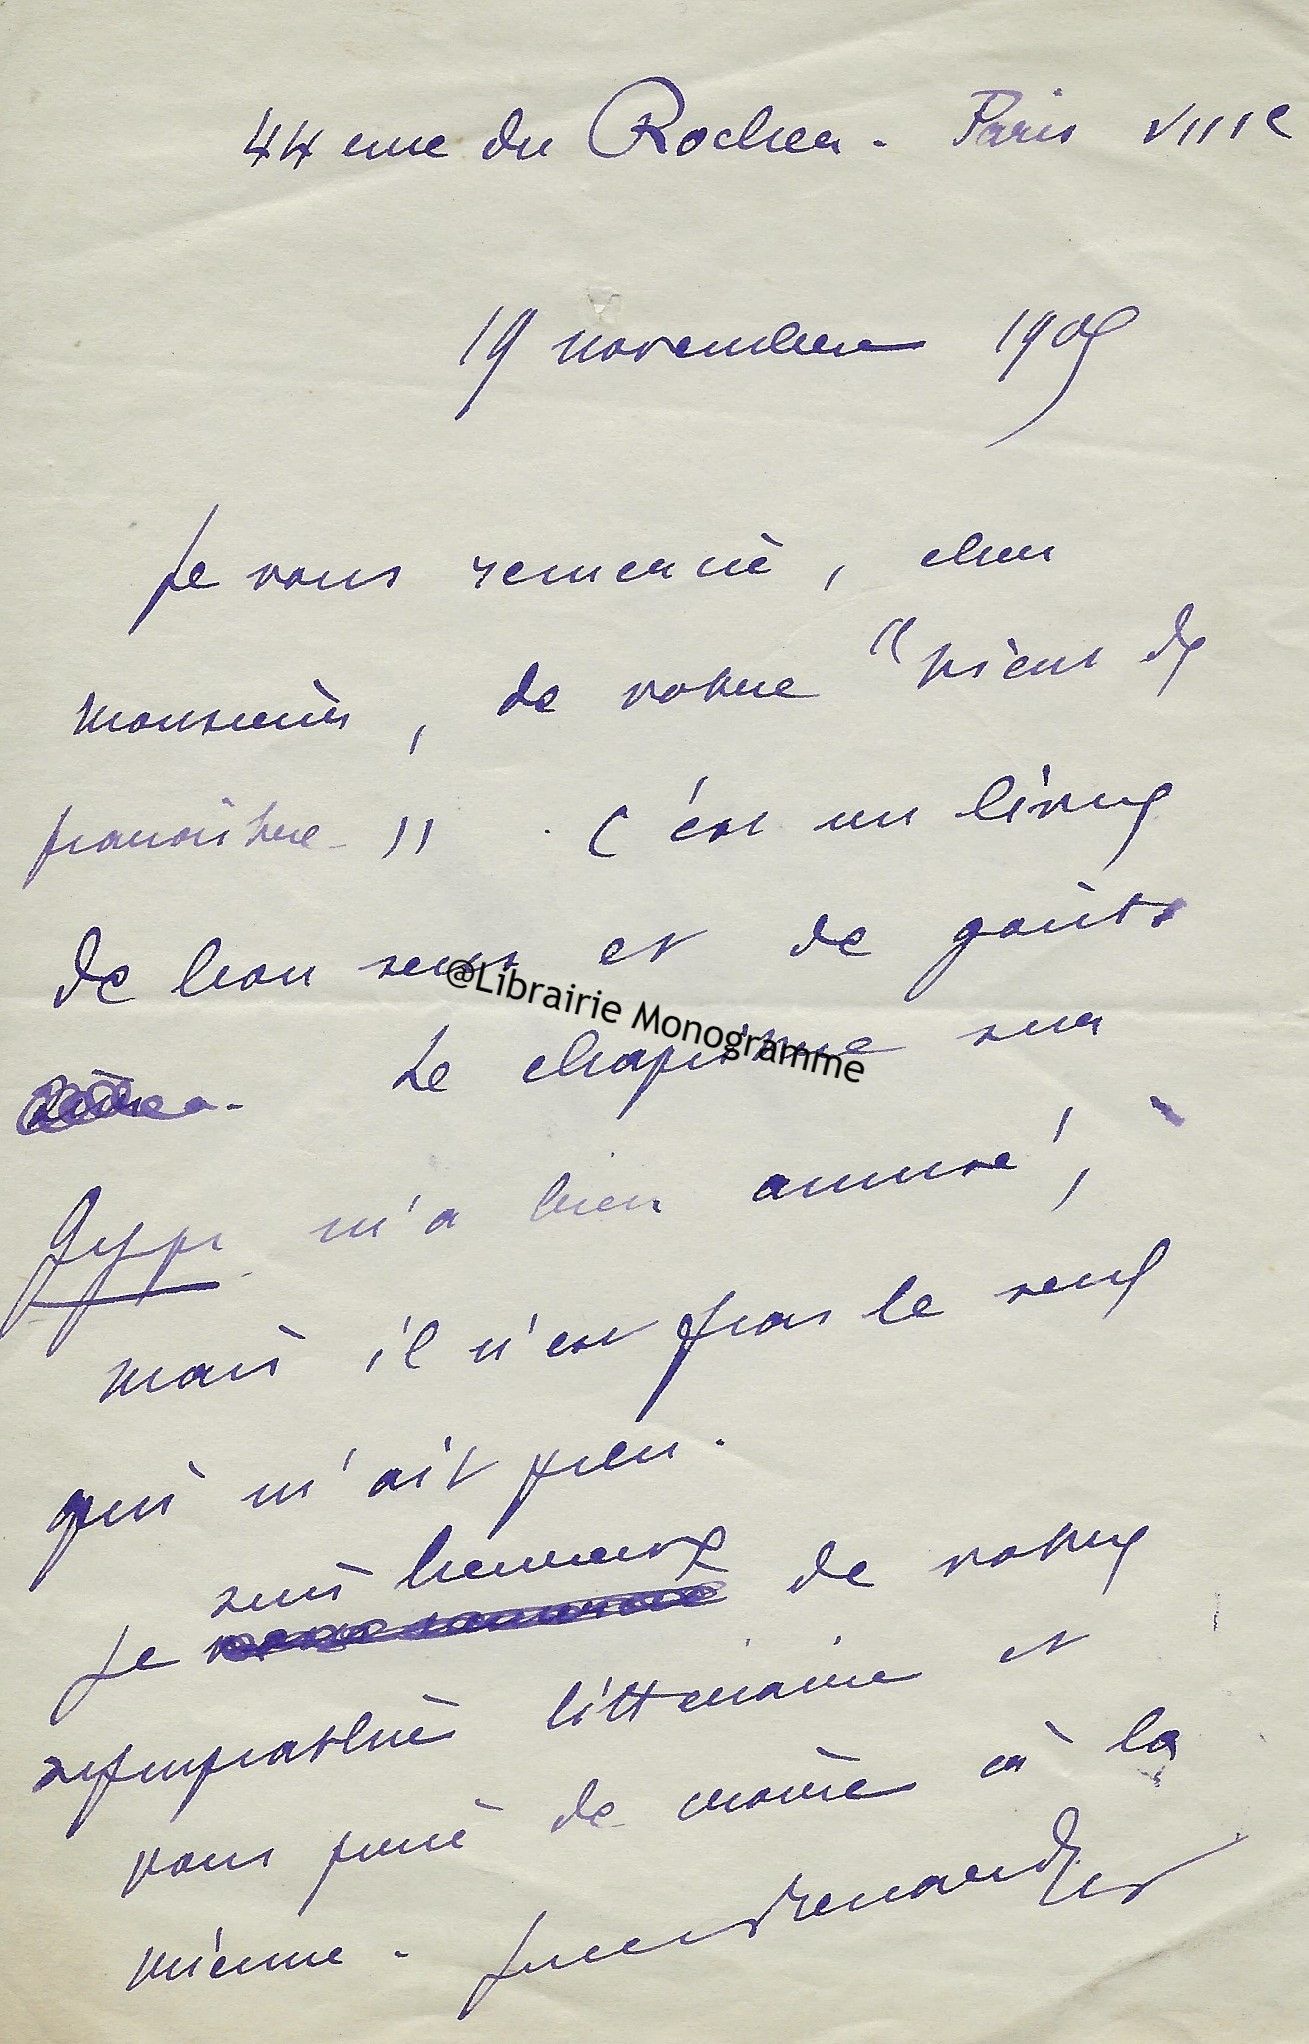 44 rue du Rocher - Paris VIIIe
19 novembre 1909
Je vous remercie, cher
monsieur, de votre "Vient de
paraître". C'est un livre
de bon sens et de goût
Le chapitre sur
Gyp m'a bien amusé,
mais il n'est pas le seul
qui m'ait plu.
suis heureux
Je de votre
sympathie littéraire et
vous prie de croire à la
mienne. Jules Renard
@Librairie Monogramme